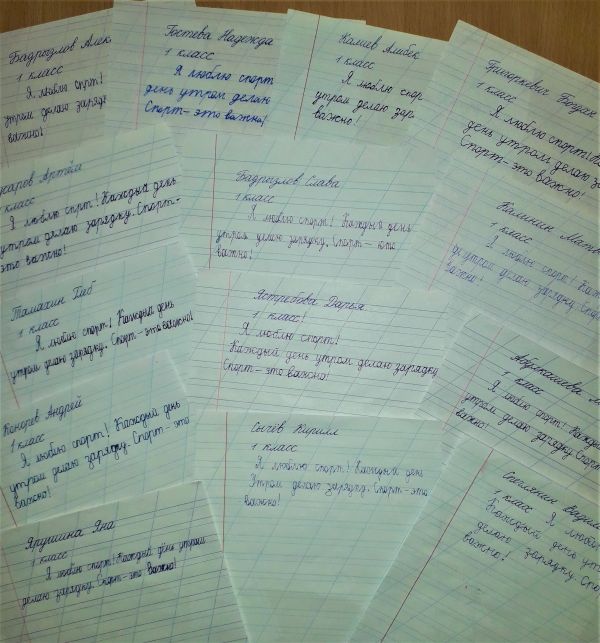 Бадрызлов Алек
1 класс
Я люблю спрт!
утром делаю заряд
важно!
Гостева Надежда
1 класс
Я люблю спорт
день утром делаю
Спорт-это важно!
Калиев Алибек
1 класс
Я люблю спор
утром делаю зар
важно!
Григоркевич Богдан
1 класс
Я люблю спорт! Ка
день утром делаю за
Спорт-это важно!
саров Артём
класс
Я люблю спрт! Каждый день
утром делаю зарядку. Спорт-
это важно!
Бадрызлов Слава
1 класс
Я люблю спорт! Каждый день
утром делаю зарядку. Спорт-это
важно!
Калинин Матв
1 класс
Я люблю спорт! К
утром делаю зарядку. Спо
важно!
Тамахин Глеб
1 класс
Я люблю спорт! Каждый день
утром делаю зарядку. Спорт-это важно!
Ястребова Дарья
1 класс!
Я люблю спорт!
Каждый день утром делаю зарядку
Спорт-это важно!
Абдикашева М
1 класс
Я люблю спорт! Ка
утром делаю зарядку. Спорт
важно!
Конорев Андрей
1 класс
Я люблю спорт! Каждый день
утром делаю зарядку. Спорт-это
важно!
Сычёв Кирилл
1 класс
Я люблю спорт! Каждый день
Утром делаю зарядку. Спорт-это
важно!
Вадим
1 класс Я люби
Каждый день ут
делаю зарядку. Спо
важно!
Ярушина Яна
1 класс
Я люблю спорт! Каждый день утром
делаю зарядку. Спорт-это важно!